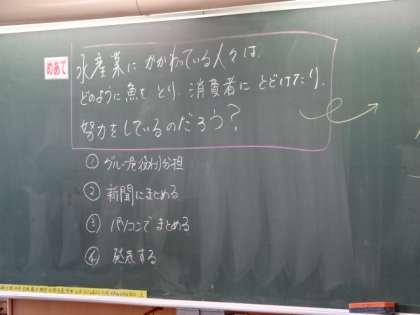 めあて
水産業にかかわっている人々は、
どのように魚をとり、消費者にとどけたり、
努力をしているのだろう？
① グループを(分け)分担
② 新聞にまとめる
③ パソコンでまとめる
④ 発表する